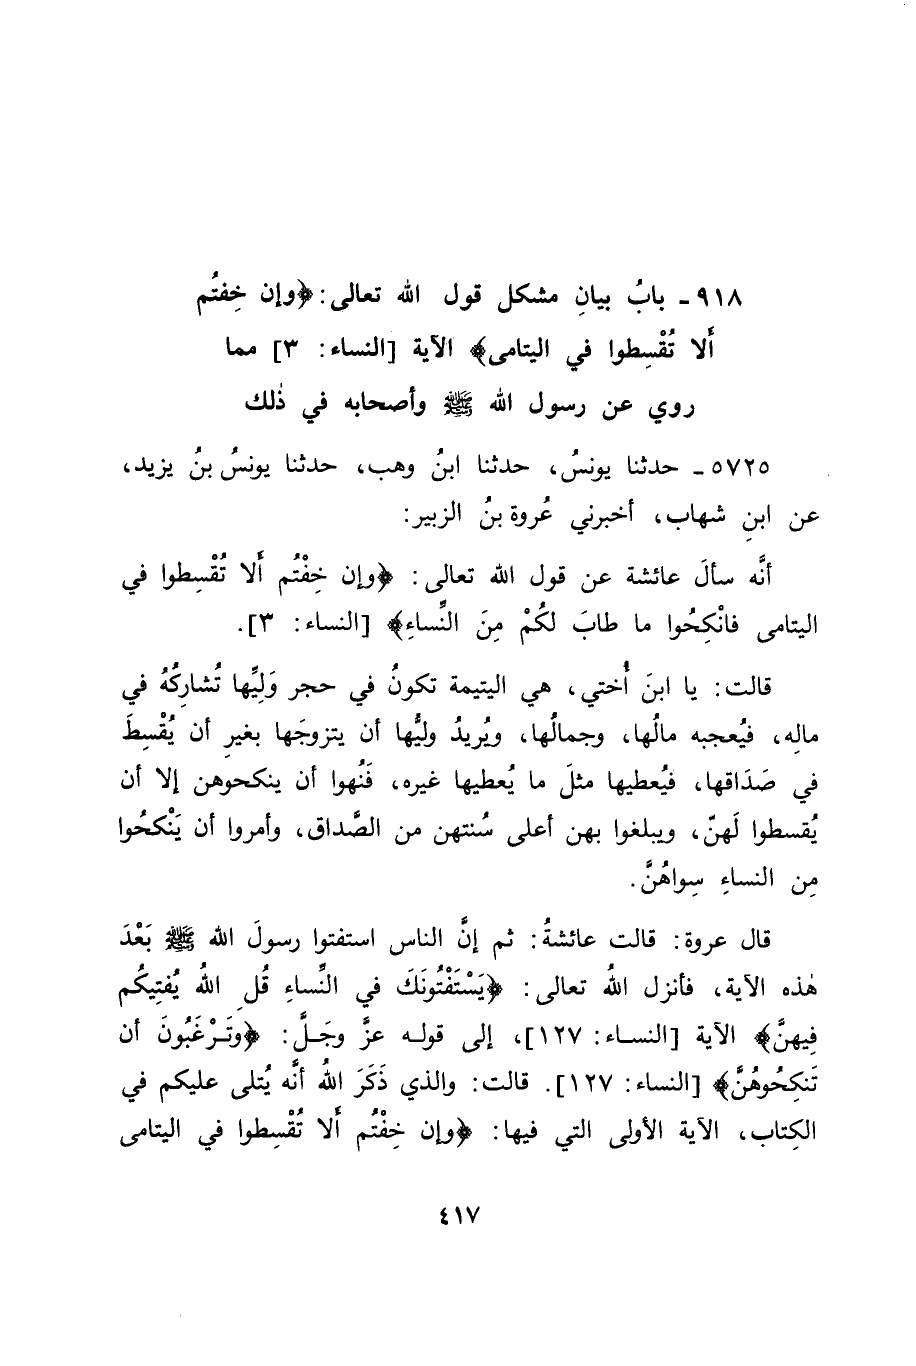 ٩١٨ - بابُ بيانِ مشكل قول الله تعالى: ﴿وإن خِفتُم
أَلا تُقْسِطوا في اليتامى﴾ الآية [النساء: ٣] مما
روي عن رسول الله ﷺ وأصحابه في ذٰلك
٥٧٢٥ - حدثنا يونسُ، حدثنا ابنُ وهب، حدثنا يونسُ بنُ يزيد،
عن ابنِ شهاب، أخبرني عُروة بنُ الزبير:
أنَّه سألَ عائشة عن قول الله تعالى: ﴿وإن خِفْتُم أَلا تُقْسِطوا في
اليتامى فانْكِحُوا ما طابَ لكُمْ مِنَ النِّساءِ﴾ [النساء: ٣].
قالت: يا ابنَ أُختي، هي اليتيمة تكونُ في حجر وَلِيِّها تُشارِكُهُ في
مالِه، فيُعجبه مالُها، وجمالُها، ويُريدُ وليُّها أن يتزوجَها بغيرِ أن يُقْسِطَ
في صَدَاقها، فيُعطيها مثلَ ما يُعطيها غيره، فَنُهوا أن ينكحوهن إلا أن
يُقسطوا لَهنّ، ويبلغوا بهن أعلى سُنتهن من الصَّداق، وأمروا أن يَنْكحُوا
مِن النساءِ سِواهُنَّ.
قال عروة: قالت عائشةُ: ثم إنَّ الناس استفتوا رسولَ الله ﷺ بَعْدَ
هٰذه الآية، فأنزل اللهُ تعالى: ﴿يَسْتَفْتُونَكَ في النِّساءِ قُلِ اللهُ يُفتِيكُم
فِيهنَّ﴾ الآية [النساء: ١٢٧]، إلى قوله عزَّ وجَلَّ: ﴿وتَرْغَبُونَ أن
تَنكِحُوهُنَّ﴾ [النساء: ١٢٧]. قالت: والذي ذَكَرَ اللهُ أنَّه يُتلى عليكم في
الكِتاب، الآية الأولى التي فيها: ﴿وإن خِفْتُم أَلا تُقْسِطوا في اليتامى
٤١٧